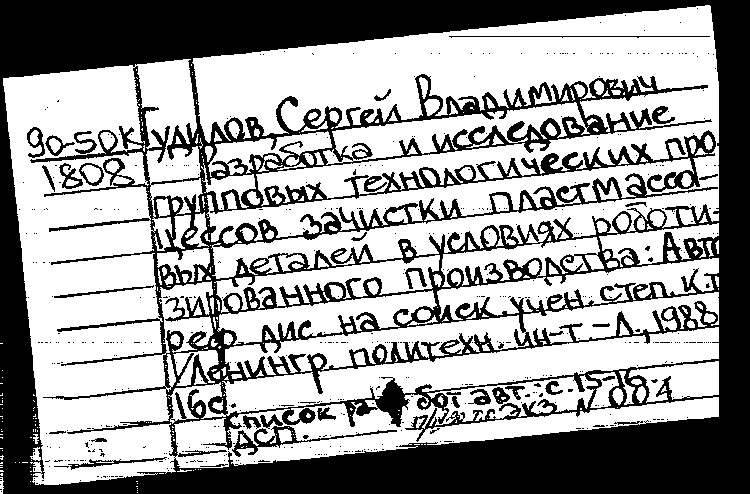 90-50К
1808
Гудилов, Сергей Владимирович
Разработка и исследование
групповых технологических про-
цессов зачистки пластмассо-
вых деталей в условиях роботи-
зированного производства: Авто
реф дис. на соиск. учен. степ. к.т
/Ленингр. политехн. ин-т. – Л., 1988
16с.
список работ авт.: с. 15-16.
ДСП. ЭКЗ N 004